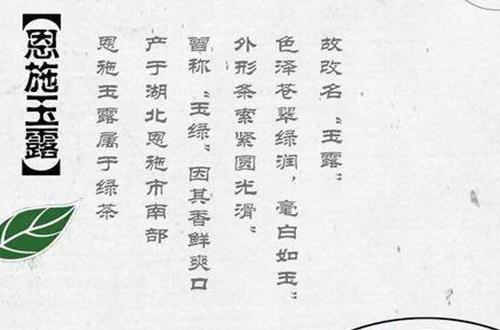 【恩施玉露】
恩施玉露属于绿茶
产于湖北恩施市南部
曾称“玉绿”因其香鲜爽口
外形条索紧圆光滑”
色泽苍翠绿润，毫白如玉”
故改名“玉露”